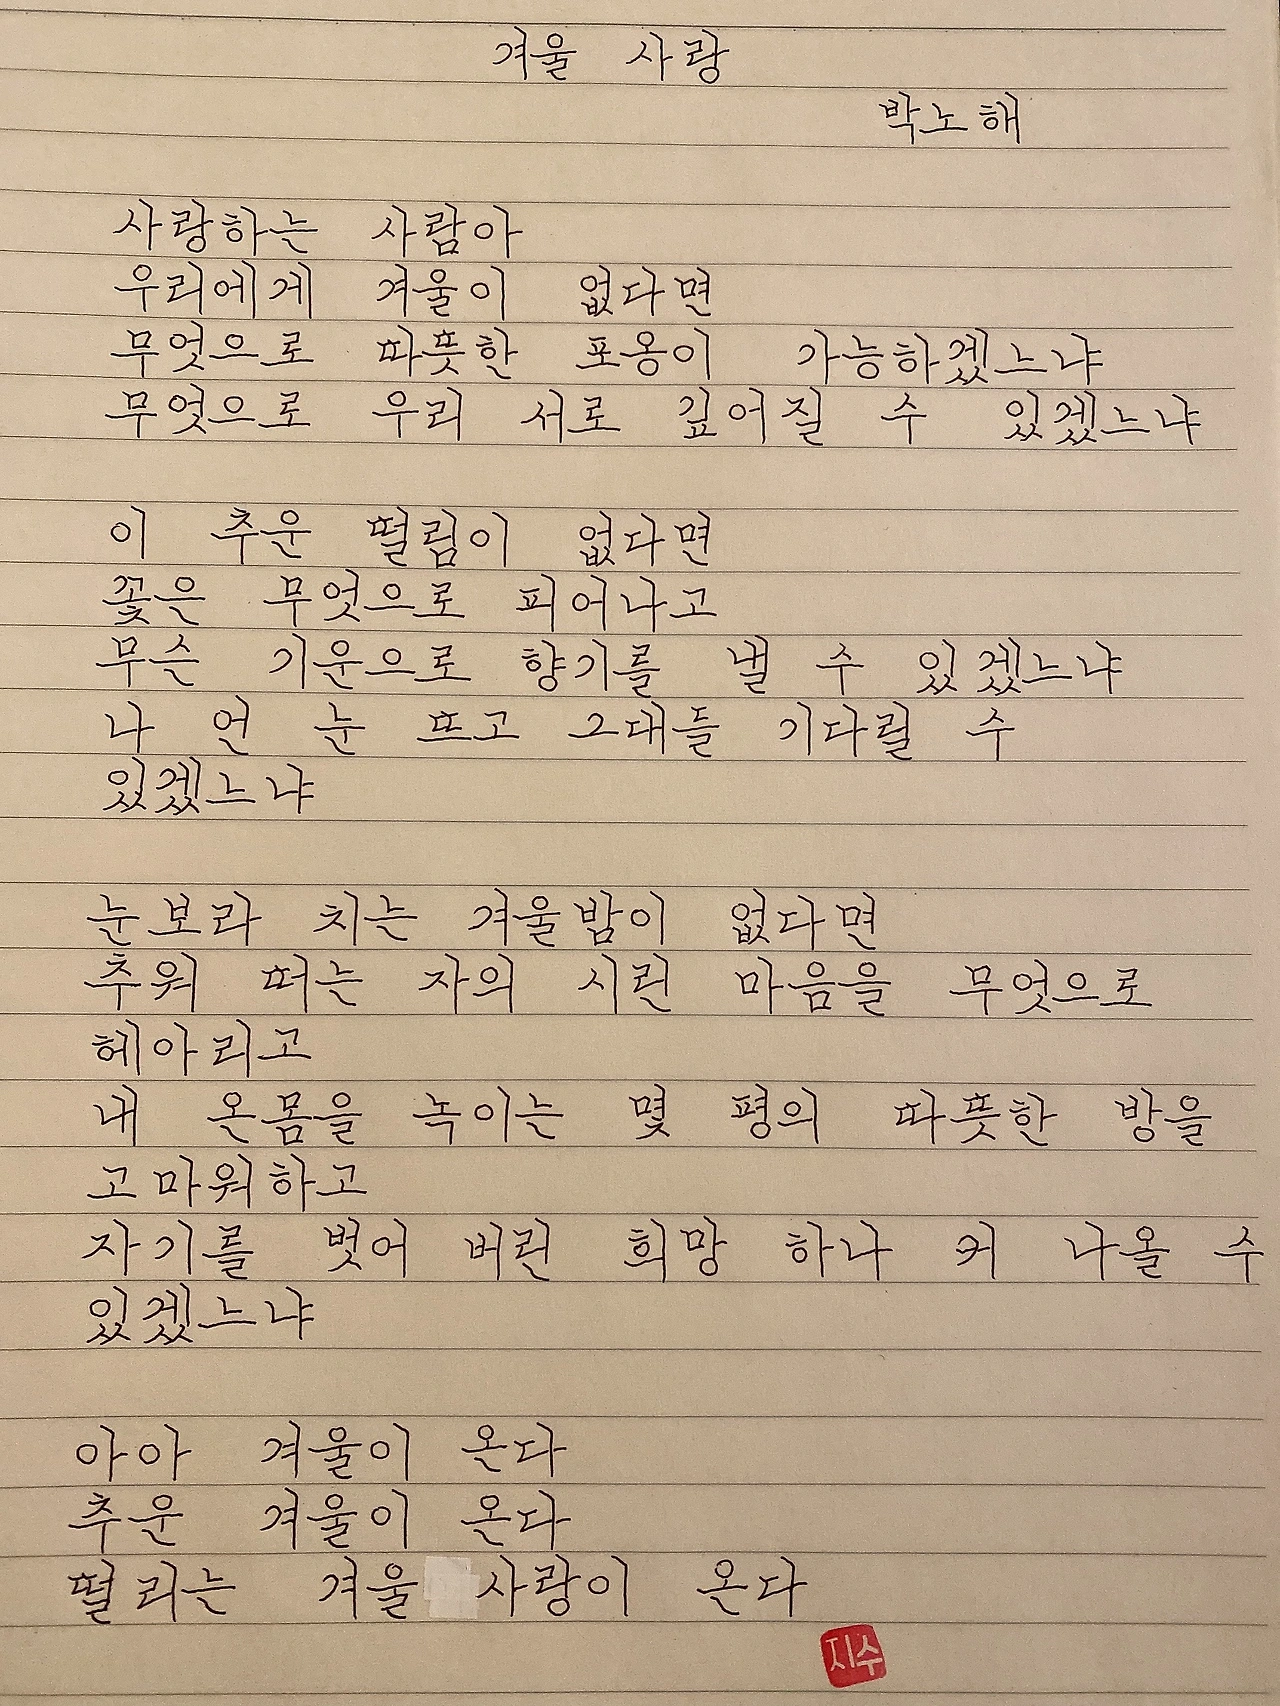 겨울 사랑
박노해
사랑하는 사람아
우리에게 겨울이 없다면
무엇으로 따뜻한 포옹이 가능하겠느냐
무엇으로 우리 서로 깊어질 수 있겠느냐
이 추운 떨림이 없다면
꽃은 무엇으로 피어나고
무슨 기운으로 향기를 낼 수 있겠느냐
나 언 눈 뜨고 그대들 기다릴 수
있겠느냐
눈보라 치는 겨울밤이 없다면
추워 떠는 자의 시린 마음을 무엇으로
헤아리고
내 온몸을 녹이는 몇 평의 따뜻한 방을
고마워하고
자기를 벗어 버린 희망 하나 커 나올 수
있겠느냐
아아 겨울이 온다
추운 겨울이 온다
떨리는 겨울 사랑이 온다
지수